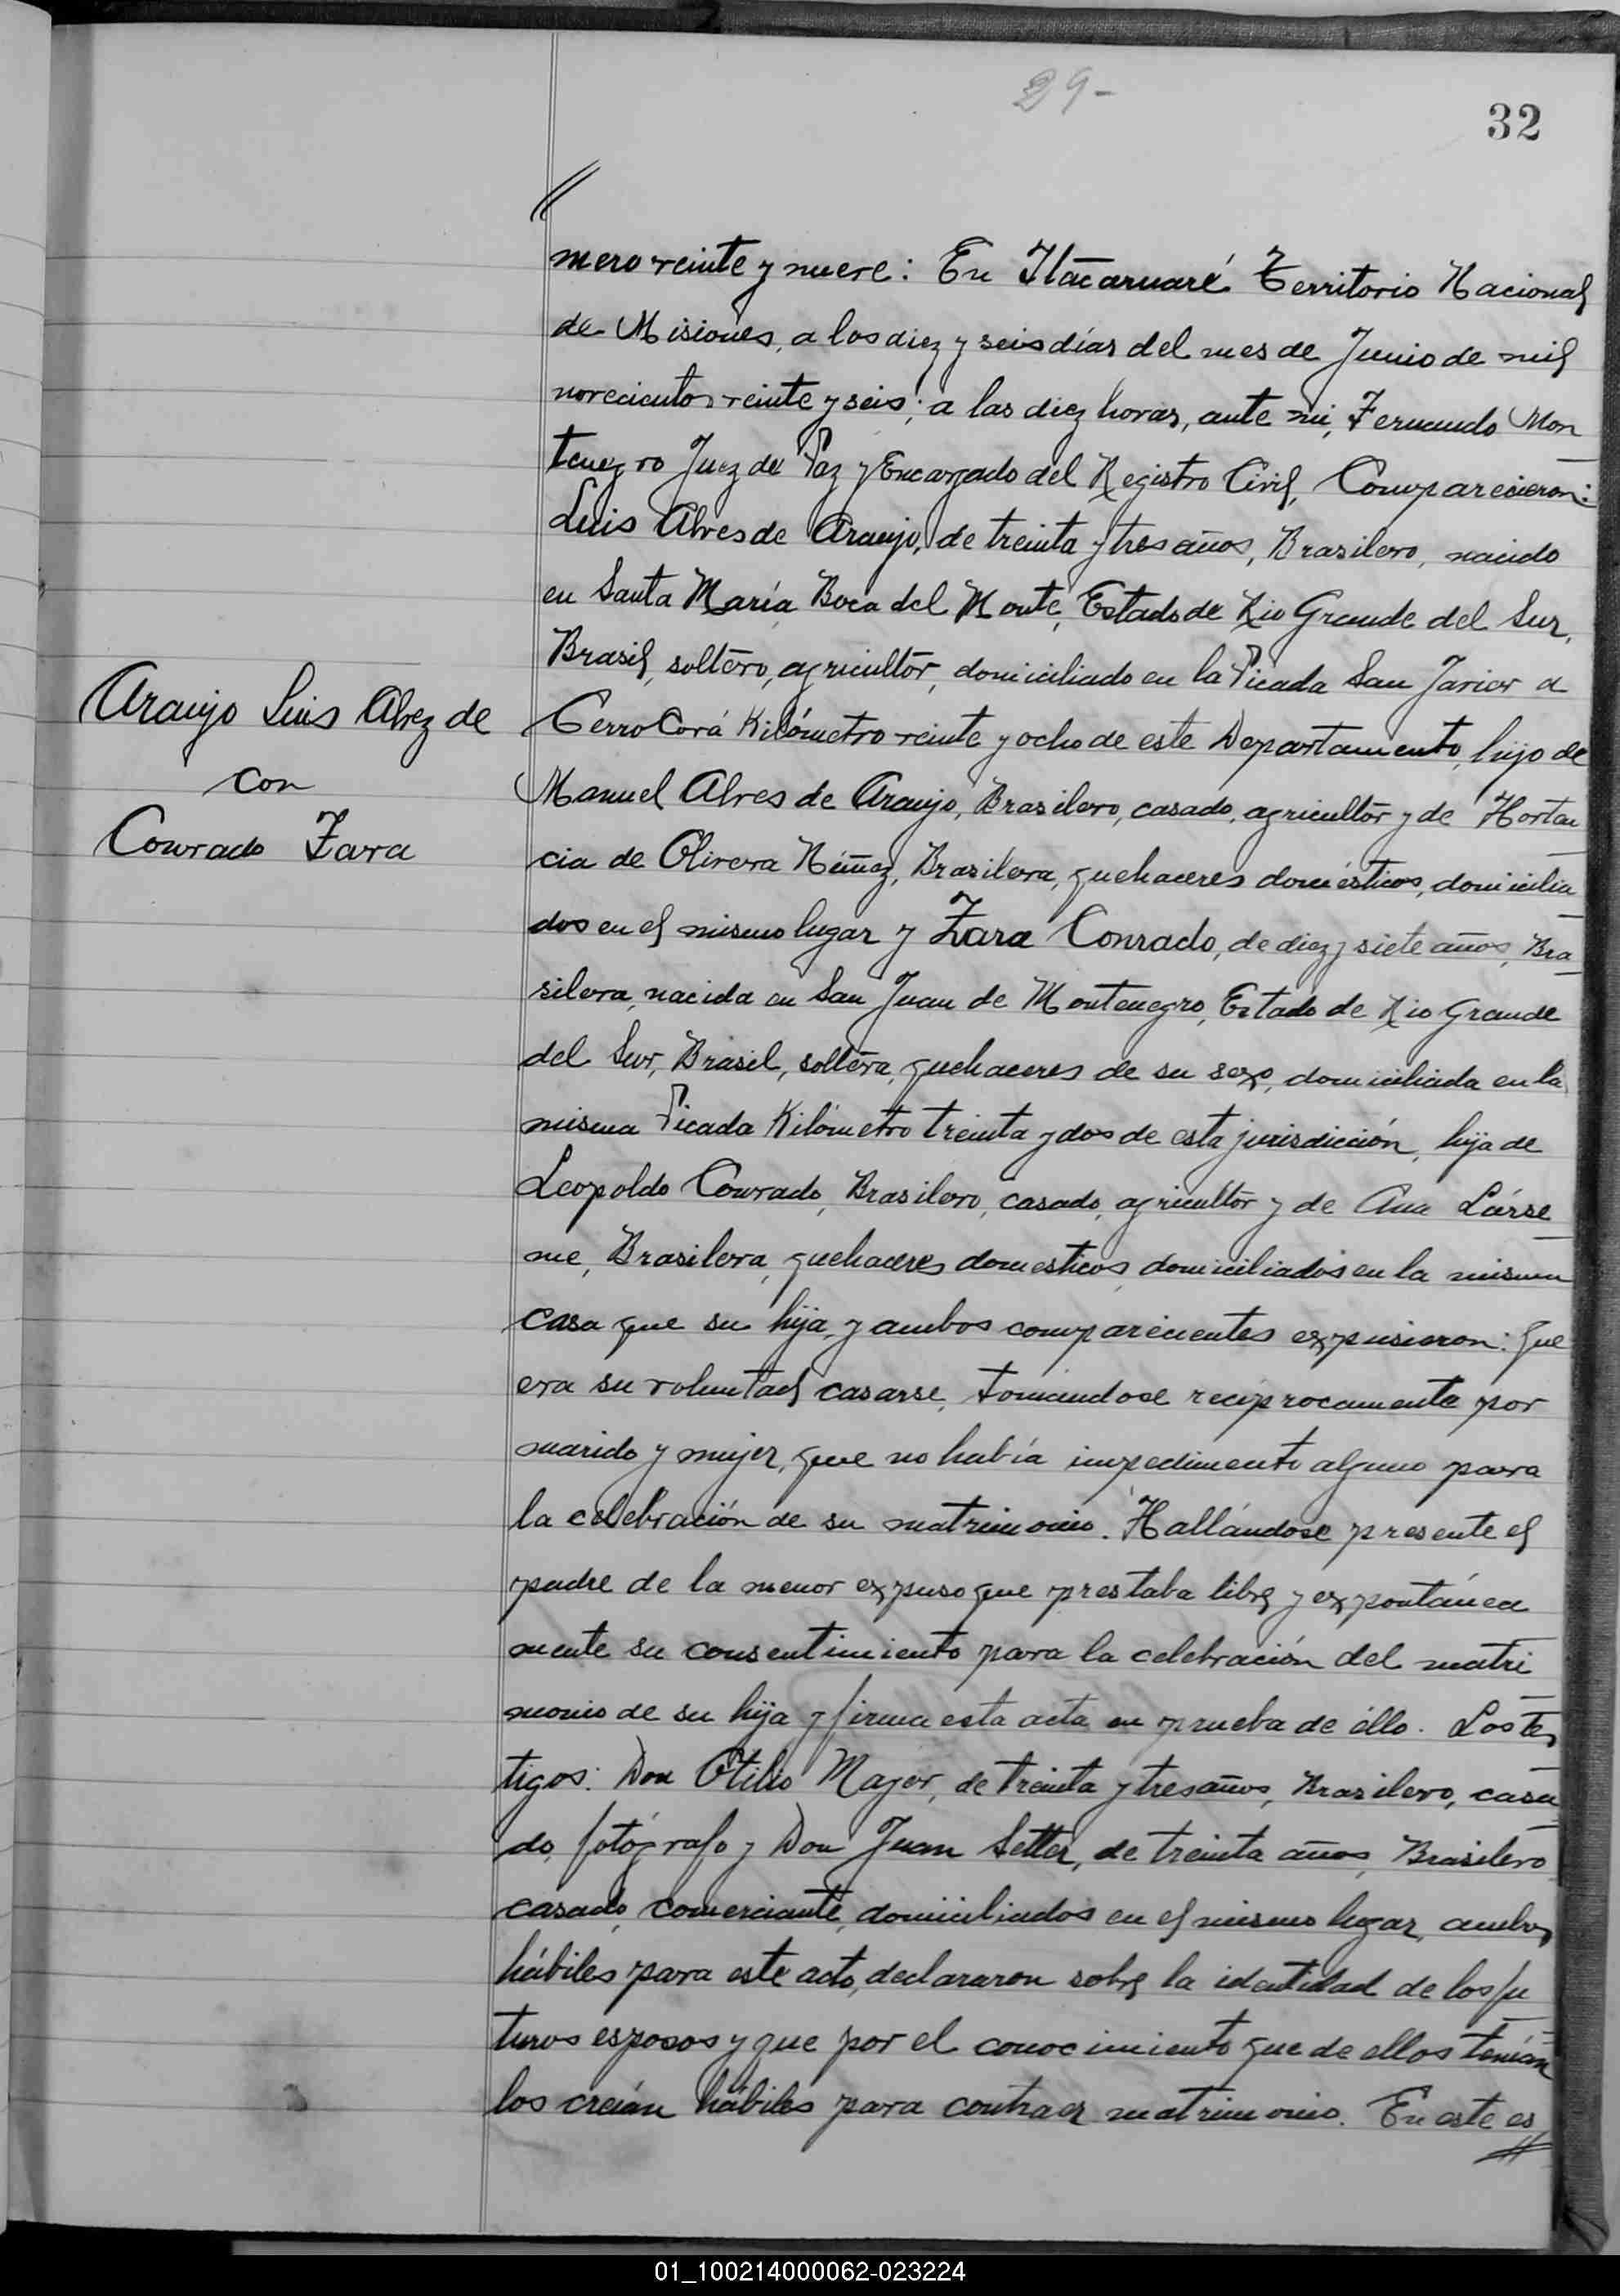 29-
32
mero veinte y nueve: En Itacaruaré Territorio Nacional
de Misiones, a los diez y seis días del mes de Junio de mil
novecientos veinte y seis; a las diez horas, ante mi, Fernando Mon
tenegro Juez de Paz y Encargado del Registro Civil, Comparecieron:
Luis Alves de Araujo, de treinta y tres años, Brasilero, nacido
en Santa María Boca del Monte, Estado de Rio Grande del Sur,
Brasil, soltero, agricultor, domiciliado en la Picada San Javier a
Cerro Corá Kilómetro veinte y ocho de este Departamento, hijo de
Manuel Alves de Araujo, Brasilero, casado, agricultor y de Horten
cia de Olivera Núñez, Brasilera, quehaceres domésticos, domicilia
dos en el mismo lugar y Zara Conrado, de diez y siete años, Bra
silera, nacida en San Juan de Montenegro, Estado de Rio Grande
del Sur, Brasil, soltera, quehaceres de su sexo, domiciliada en la
misma Picada Kilómetro treinta y dos de esta jurisdicción, hija de
Leopoldo Conrado, Brasilero, casado, agricultor y de Ana
me, Brasilera, quehaceres domesticos, domiciliados en la misma
casa que su hija y ambos comparecientes expusieron: Que
era su voluntad casarse, tomándose recíprocamente por
marido y mujer, que no había impedimento alguno para
la celebración de su matrimonio. Hallándose presente el
padre de la menor expuso que prestaba libre y expontánea
mente su consentimiento para la celebración del matri
monio de su hija y firma esta acta en prueba de éllo. Los tes
tigos: Don Otilio Mayer, de treinta y tres años, Brasilero, casa
do, fotógrafo y Don Juan Setter, de treinta años, Brasilero
casado, comerciante, domiciliados en el mismo lugar, ambos
hábiles para este acto, declararon sobre la identidad de los fu
turos esposos y que por el conocimiento que de ellos tenían
los creían hábiles para contraer matrimonio. En este es
Araujo Luis Alvez de
con
Conrado Zara
01_100214000062-023224